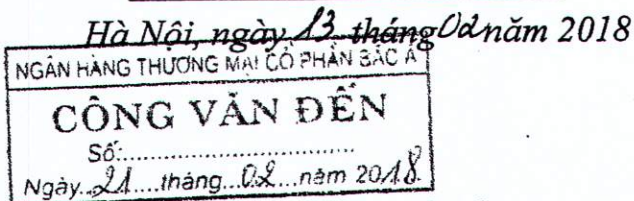 Hà Nội, ngày 13 tháng 02 năm 2018
NGÂN HÀNG THƯƠNG MẠI CỔ PHẦN BẮC Á
CÔNG VĂN ĐẾN
Số:................................
Ngày..21....tháng...02...năm 2018